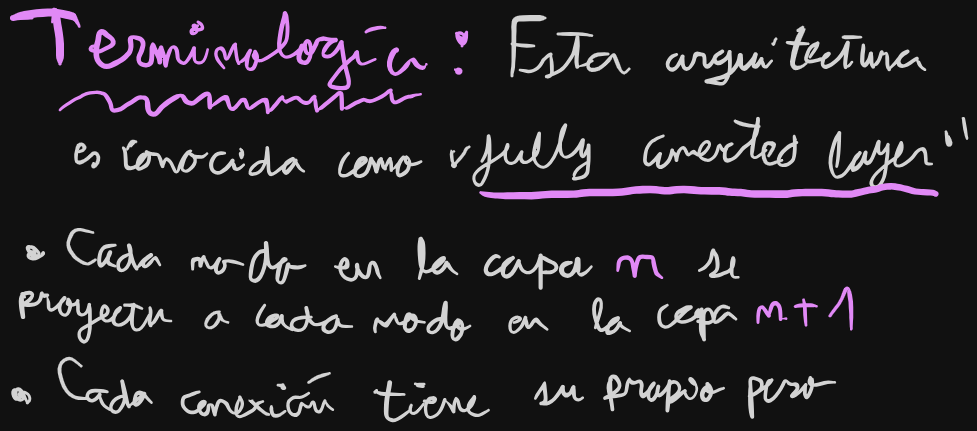 Terminología: Esta arquitectura
es conocida como "fully conected layer"
• Cada nodo en la capa n se
proyecta a cada nodo en la capa n+1
• Cada conexión tiene su propio peso